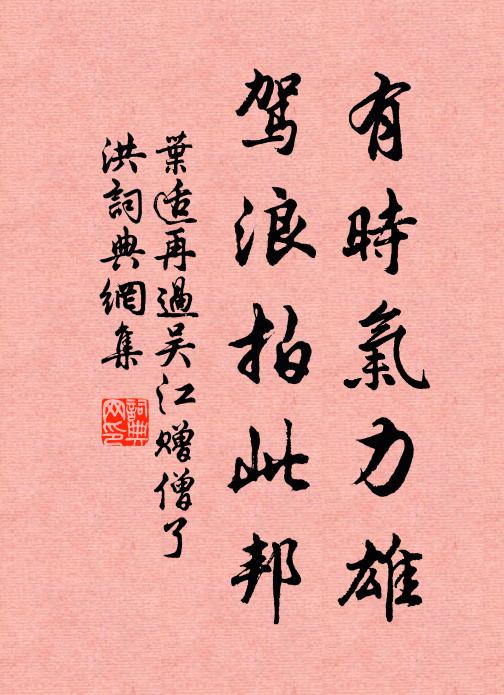 有時氣力雄
駕浪拍此邦
葉适再過吴江赠僧了
洪詞典網集
詞典
网印